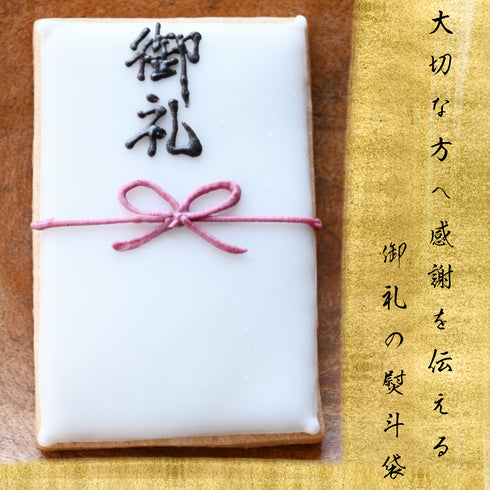 大切な方へ感謝を伝える
御礼の熨斗袋
御礼